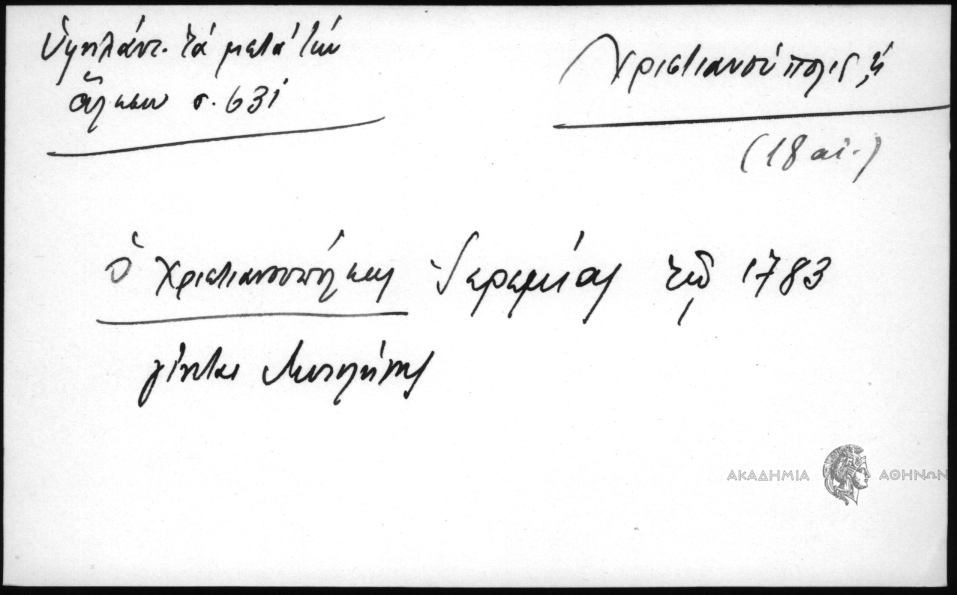 Ὑψηλάντ. τὰ μετὰ τὴν
ἅλωσιν σ. 631
Χριστιανούπολις, ἡ
(18 αἰ.)
ὁ Χριστιανουπόλεως Ἱερεμίας τῷ 1783
γίνεται Μυτιλήνης
ΑΚΑΔΗΜΙΑ ΑΘΗΝΩΝ